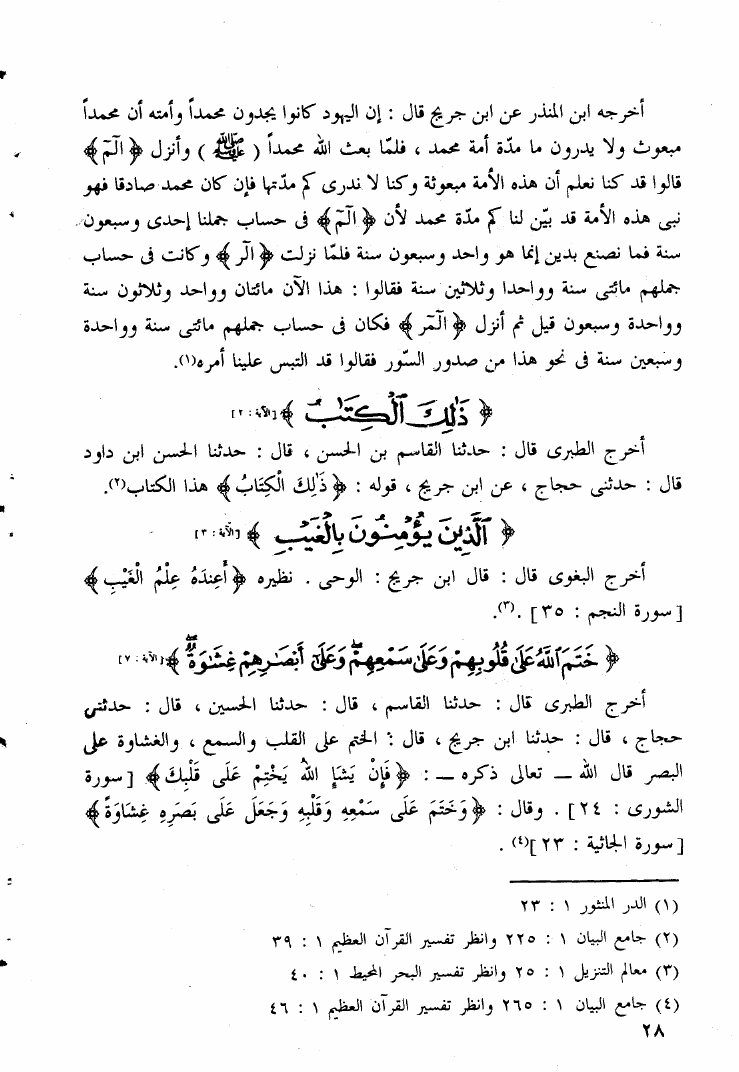 أخرجه ابن المنذر عن ابن جريج قال : إن اليهود كانوا يجدون محمداً وأمته أن محمداً
مبعوث ولا يدرون ما مدّة أمة محمد ، فلمّا بعث الله محمداً ( ﷺ ) وأنزل ﴿ الٓمٓ ﴾
قالوا قد كنا نعلم أن هذه الأمة مبعوثة وكنا لا ندرى كم مدّتها فإن كان محمد صادقا فهو
نبى هذه الأمة قد بيّن لنا كم مدّة محمد لأن ﴿ الٓمٓ ﴾ فى حساب جملنا إحدى وسبعون
سنة فما نصنع بدين إنما هو واحد وسبعون سنة فلمّا نزلت ﴿ الٓر ﴾ وكانت فى حساب
جملهم مائتى سنة وواحدا وثلاثين سنة فقالوا : هذا الآن مائتان وواحد وثلاثون سنة
وواحدة وسبعون قيل ثم أنزل ﴿ الٓمٓر ﴾ فكان فى حساب جملهم مائتى سنة وواحدة
وسبعين سنة فى نحو هذا من صدور السّور فقالوا قد التبس علينا أمره(١).
﴿ ذَٰلِكَ ٱلْكِتَٰبُ ﴾ [الآية : ٢]
أخرج الطبرى قال : حدثنا القاسم بن الحسن ، قال : حدثنا الحسن ابن داود
قال : حدثنى حجاج ، عن ابن جريج ، قوله : ﴿ ذَٰلِكَ الْكِتَابُ ﴾ هذا الكتاب(٢).
﴿ ٱلَّذِينَ يُؤْمِنُونَ بِٱلْغَيْبِ ﴾ [الآية : ٣]
أخرج البغوى قال : قال ابن جريج : الوحى . نظيره ﴿ أَعِندَهُ عِلْمُ الْغَيْبِ ﴾
[سورة النجم : ٣٥] .(٣).
﴿ خَتَمَ ٱللَّهُ عَلَىٰ قُلُوبِهِمْ وَعَلَىٰ سَمْعِهِمْ ۖ وَعَلَىٰٓ أَبْصَٰرِهِمْ غِشَٰوَةٌ ۖ ﴾ [الآية : ٧]
أخرج الطبرى قال : حدثنا القاسم ، قال : حدثنا الحسين ، قال : حدثنى
حجاج ، قال : حدثنا ابن جريج ، قال : الختم على القلب والسمع ، والغشاوة على
البصر قال الله ــ تعالى ذكره ــ : ﴿ فَإِنْ يَشَإِ اللهُ يَخْتِمْ عَلَى قَلْبِكَ ﴾ [سورة
الشورى : ٢٤] . وقال : ﴿ وَخَتَمَ عَلَى سَمْعِهِ وَقَلْبِهِ وَجَعَلَ عَلَى بَصَرِهِ غِشَاوَةً ﴾
[سورة الجاثية : ٢٣](٤) .
(١) الدر المنثور ١ : ٢٣
(٢) جامع البيان ١ : ٢٢٥ وانظر تفسير القرآن العظيم ١ : ٣٩
(٣) معالم التنزيل ١ : ٢٥ وانظر تفسير البحر المحيط ١ : ٤٠
(٤) جامع البيان ١ : ٢٦٥ وانظر تفسير القرآن العظيم ١ : ٤٦
٢٨